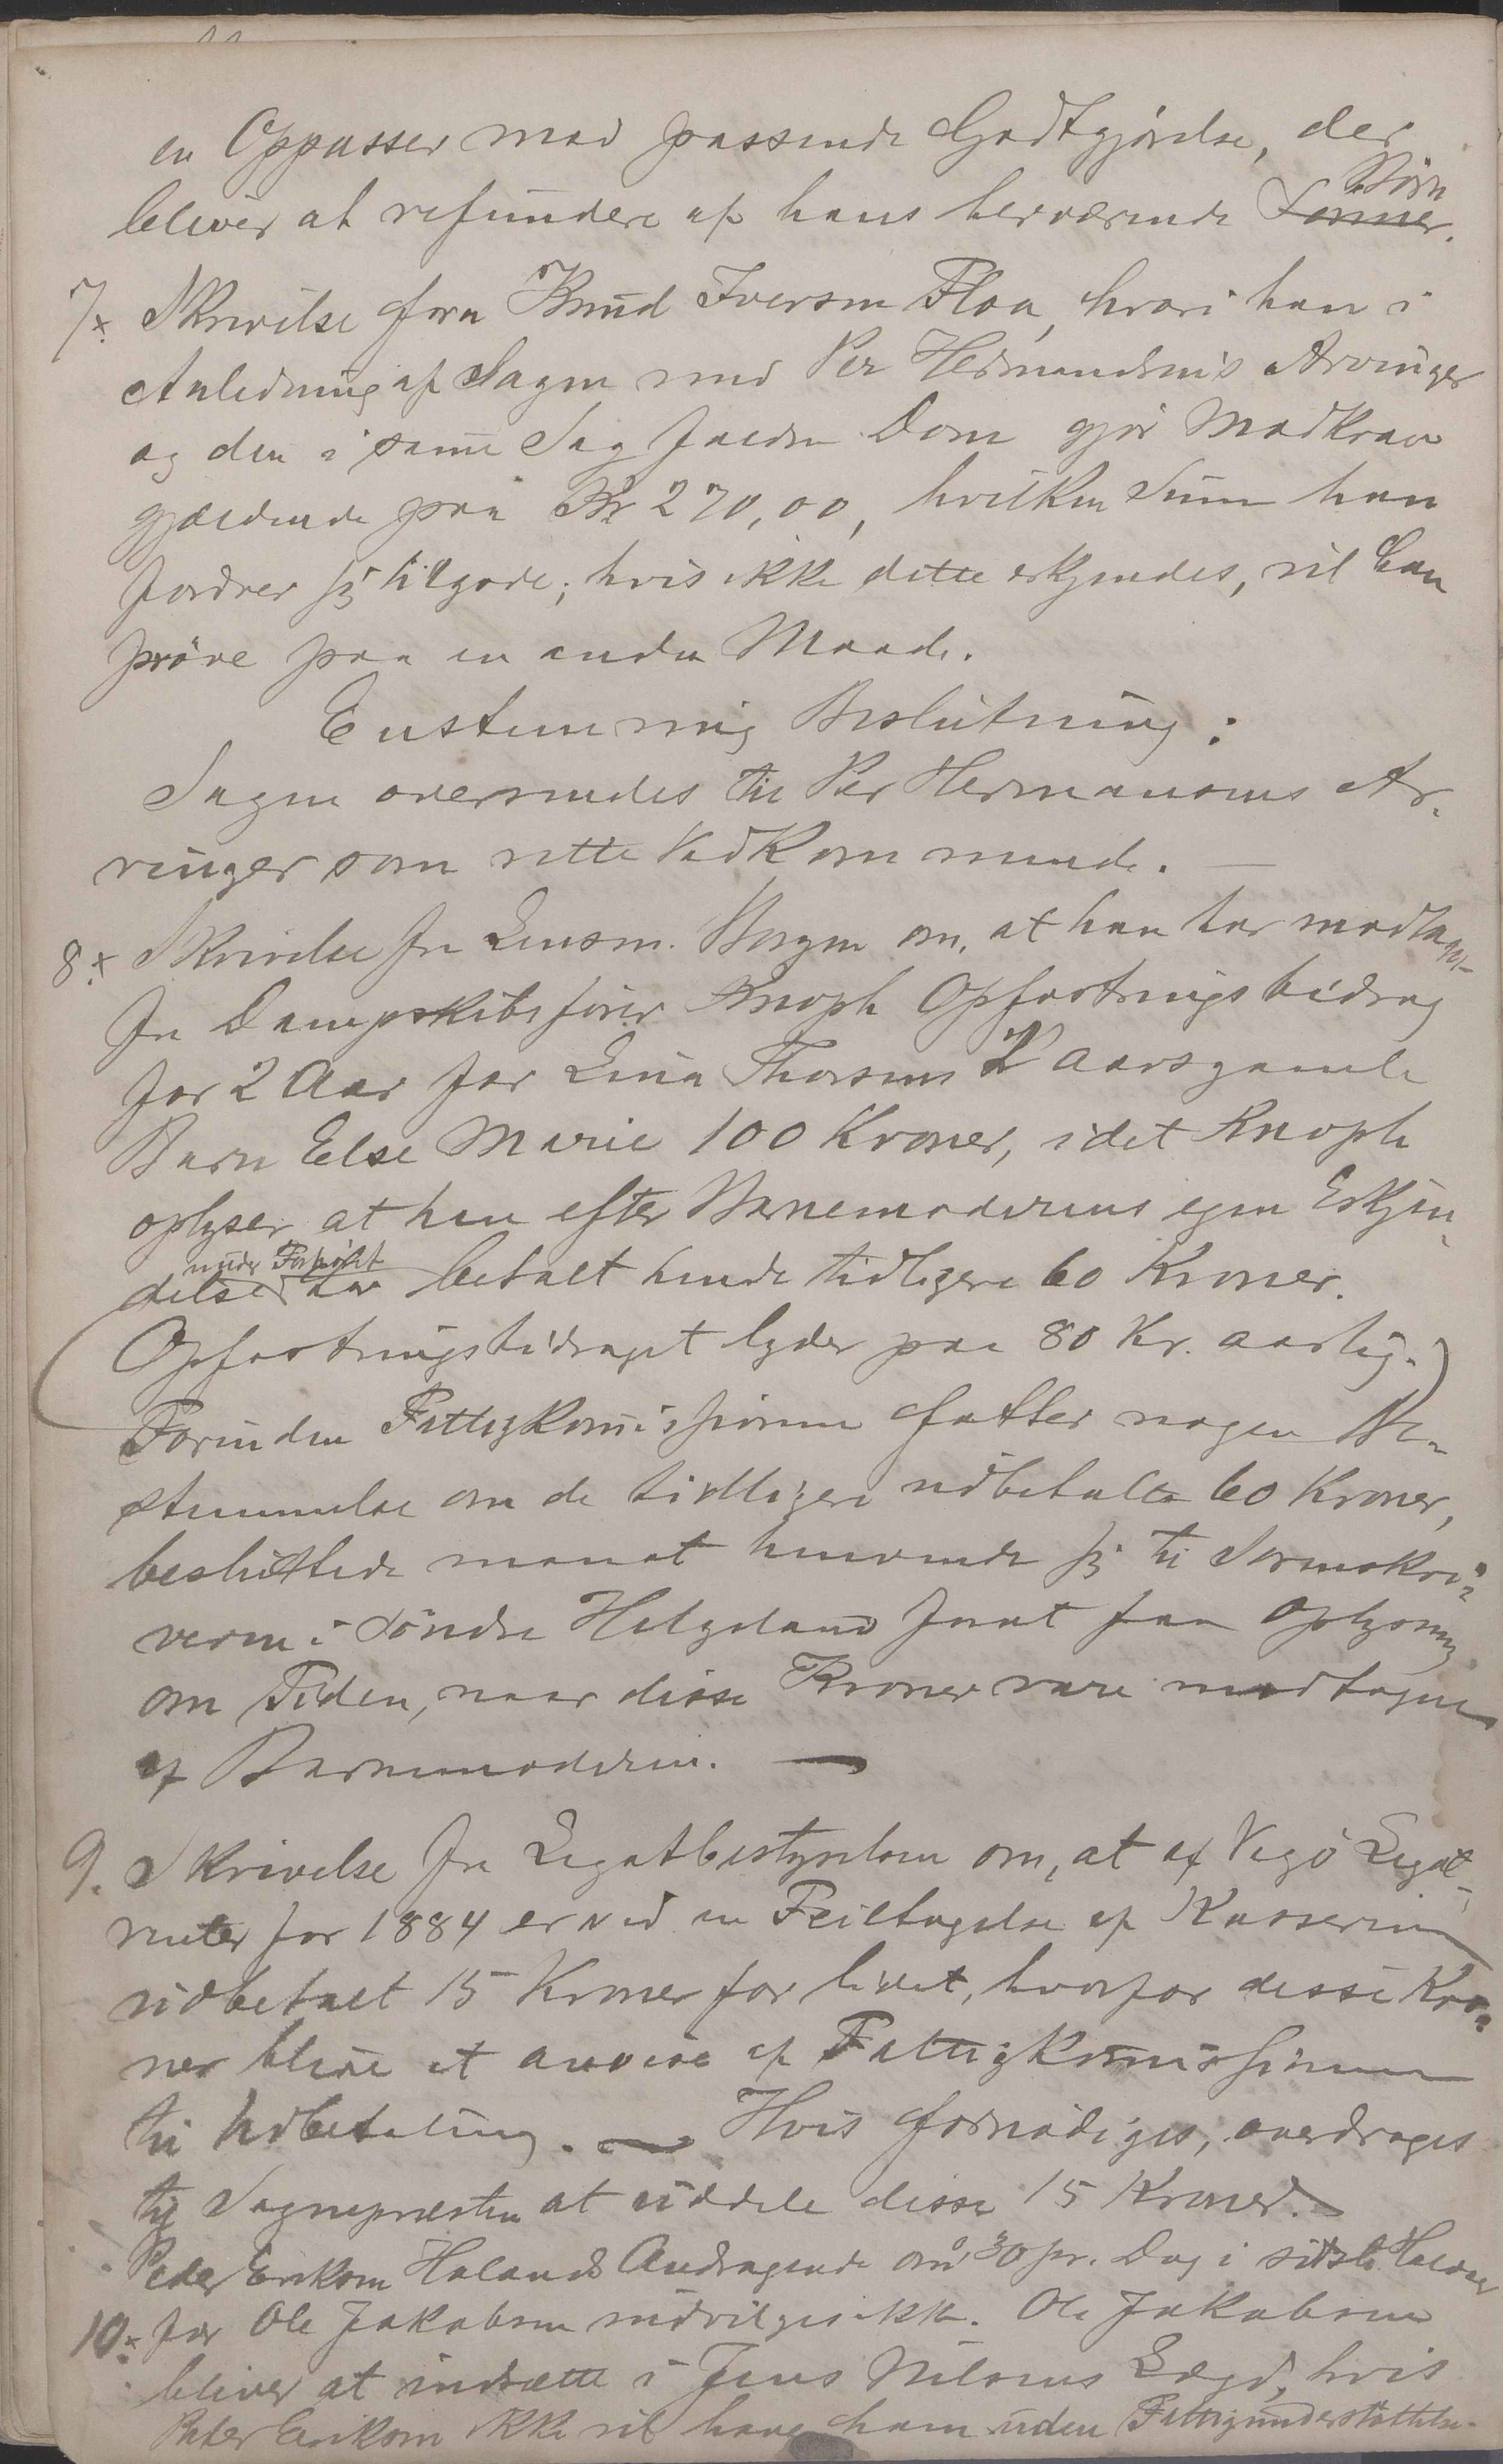 en Oppasser mod passende Godtgjørelse, der
bliver at refundere af hans herværende Sønner. Børn
7x. Skrivelse fra Knud Iversen Floa, hvori han i
Anledning af Sagen med Per Hermandsens Arvinger
og den i samme Sag faldne Dom gjør Modkrav
gjældende paa Kr 270,00, hvilken Sum han
fordrer sig tilgode; hvis ikke dette erkjendes, vil han
prøve paa en anden Maade.
Enstemmig Beslutning:
Sagen oversendes til Per Hermansens Ar-
vinger som rette Vedkommende. —
8x. Skrivelse fra Lensm. Borgen om, at han har modtaget
fra Dampskibsfører Knoph Opfostringsbidrag
for 2 Aar for Lina Thorsens 2 aarsgamle
Barn Else Marie 100 Kroner, idet Knoph
oplyser at han efter Barnemoderens egen Erkjen-
delse under Forhøret har betalt hende tidligere 60 Kroner.
(Opfostringsbidraget lyder paa 80 Kr. aarlig.)
Forinden Fattigkommissionen fatter nogen Be-
stemmelse om de tidligere udbetalte 60 Kroner,
besluttede man at henvende sig til Sorenskri-
veren i Søndre Helgeland for at faa Oplysning
om Tiden, naar disse Kroner vare modtagne
af Barnemoderen. —
9. Skrivelse fra Legatbestyrelsen om, at af Vegø Legat-
renter for 1884 er ved en Feiltagelse af Kassereren
udbetalt 15 Kroner for lidet, hvorfor disse Kro-
ner blive at anvise af Fattigkommissionen
til Udbetaling. — Hvis fornødiges, overdrages
til Sognepræsten at uddele disse 15 Kroner. —
Peder Eriksen Holands Andragende om 30 pr. Dag i sidste Halvaar
10x. for Ole Jakobsen indvilges ikke. Ole Jakobsen
bliver at indsætte i Jens Nilsens Lægd, hvis
Peder Eriksen ikke vil have ham uden Fattigunderstøttelse.